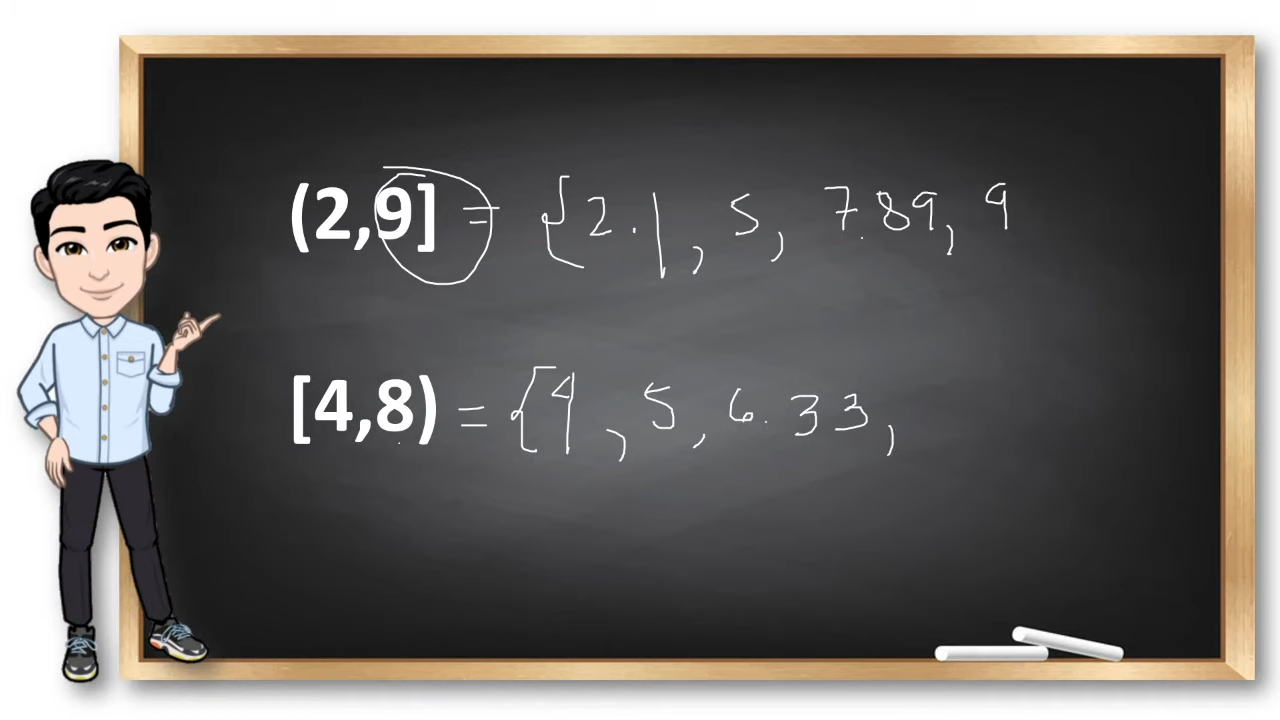 (2,9] = {2.1, 5, 7.89, 9
[4,8) = {4, 5, 6.33,